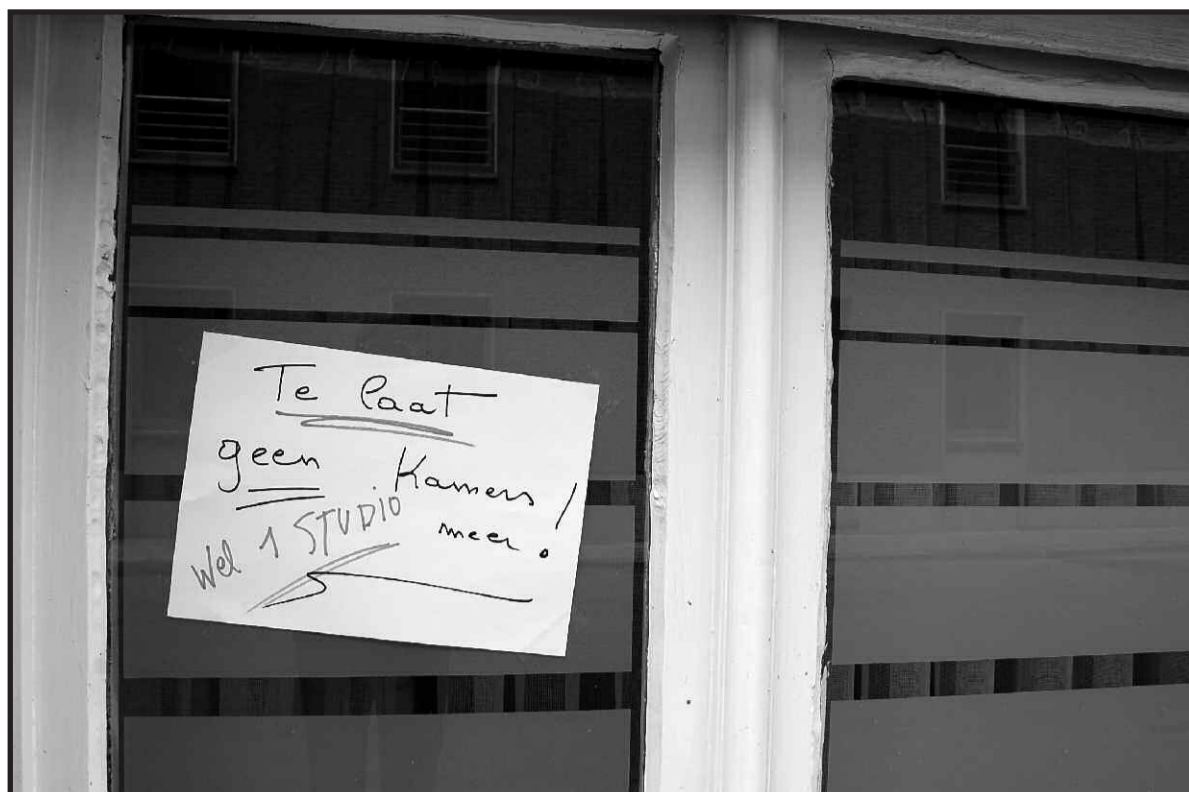 Te laat
geen Kamers
meer!
Wel 1 STUDIO